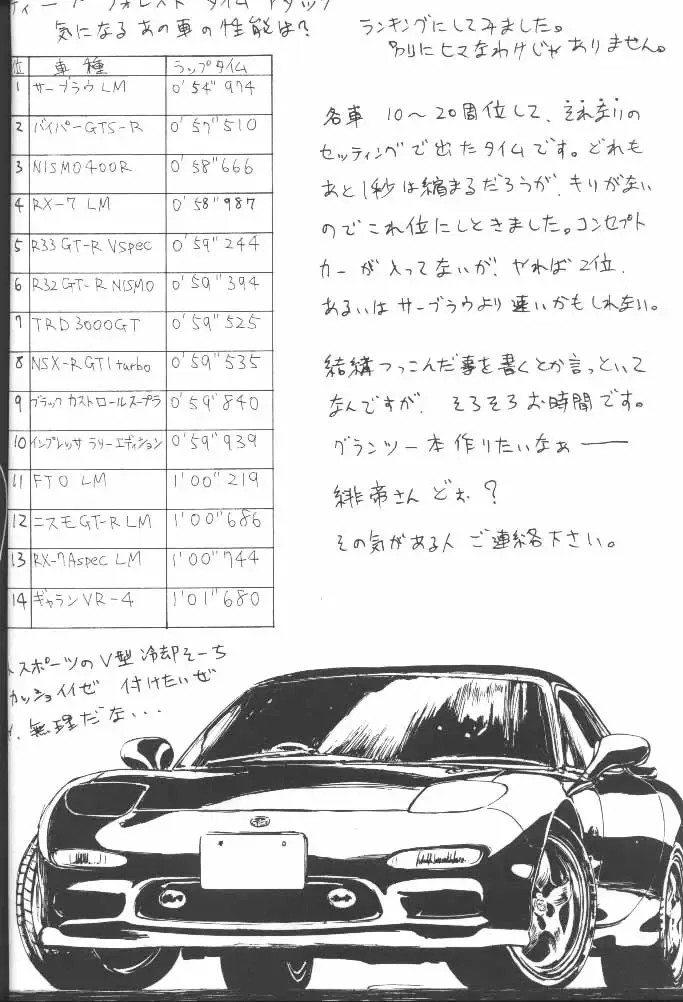 ディープ フォレスト タイム アタック
気になる あの車の性能は?
ランキングにしてみました。
別にヒマなわけじゃありません。
位 車種 ラップタイム
1 サーブラウLM 0'54"974
2 バイパーGTS-R 0'57"510
3 NISMO400R 0'58"666
4 RX-7 LM 0'58"987
5 R33 GT-R Vspec 0'59"244
6 R32 GT-R NISMO 0'59"394
7 TRD3000GT 0'59"525
8 NSX-R GT1 turbo 0'59"535
9 ブラック カストロールスープラ 0'59"840
10 インプレッサ ラリーエディション 0'59"939
11 FTO LM 1'00"219
12 ニスモGT-R LM 1'00"686
13 RX-7 Aspec LM 1'00"744
14 ギャランVR-4 1'01"680
各車 10〜20周位して、それなりの
セッティングで出たタイムです。どれも
あと1秒は縮まるだろうが、キリがない
のでこれ位にしときました。コンセプト
カーが入ってないが、やれば2位、
あるいはサーブラウより速いかもしれない。
結構つっこんだ事を書くとか言っといて
なんですが、そろそろお時間です。
グランツー本作りたいなぁ——
緋帝さん どぉ?
その気がある人 ご連絡下さい。
スポーツのV型冷却そーち
カッショイイぜ 付けたいぜ
無理だな...